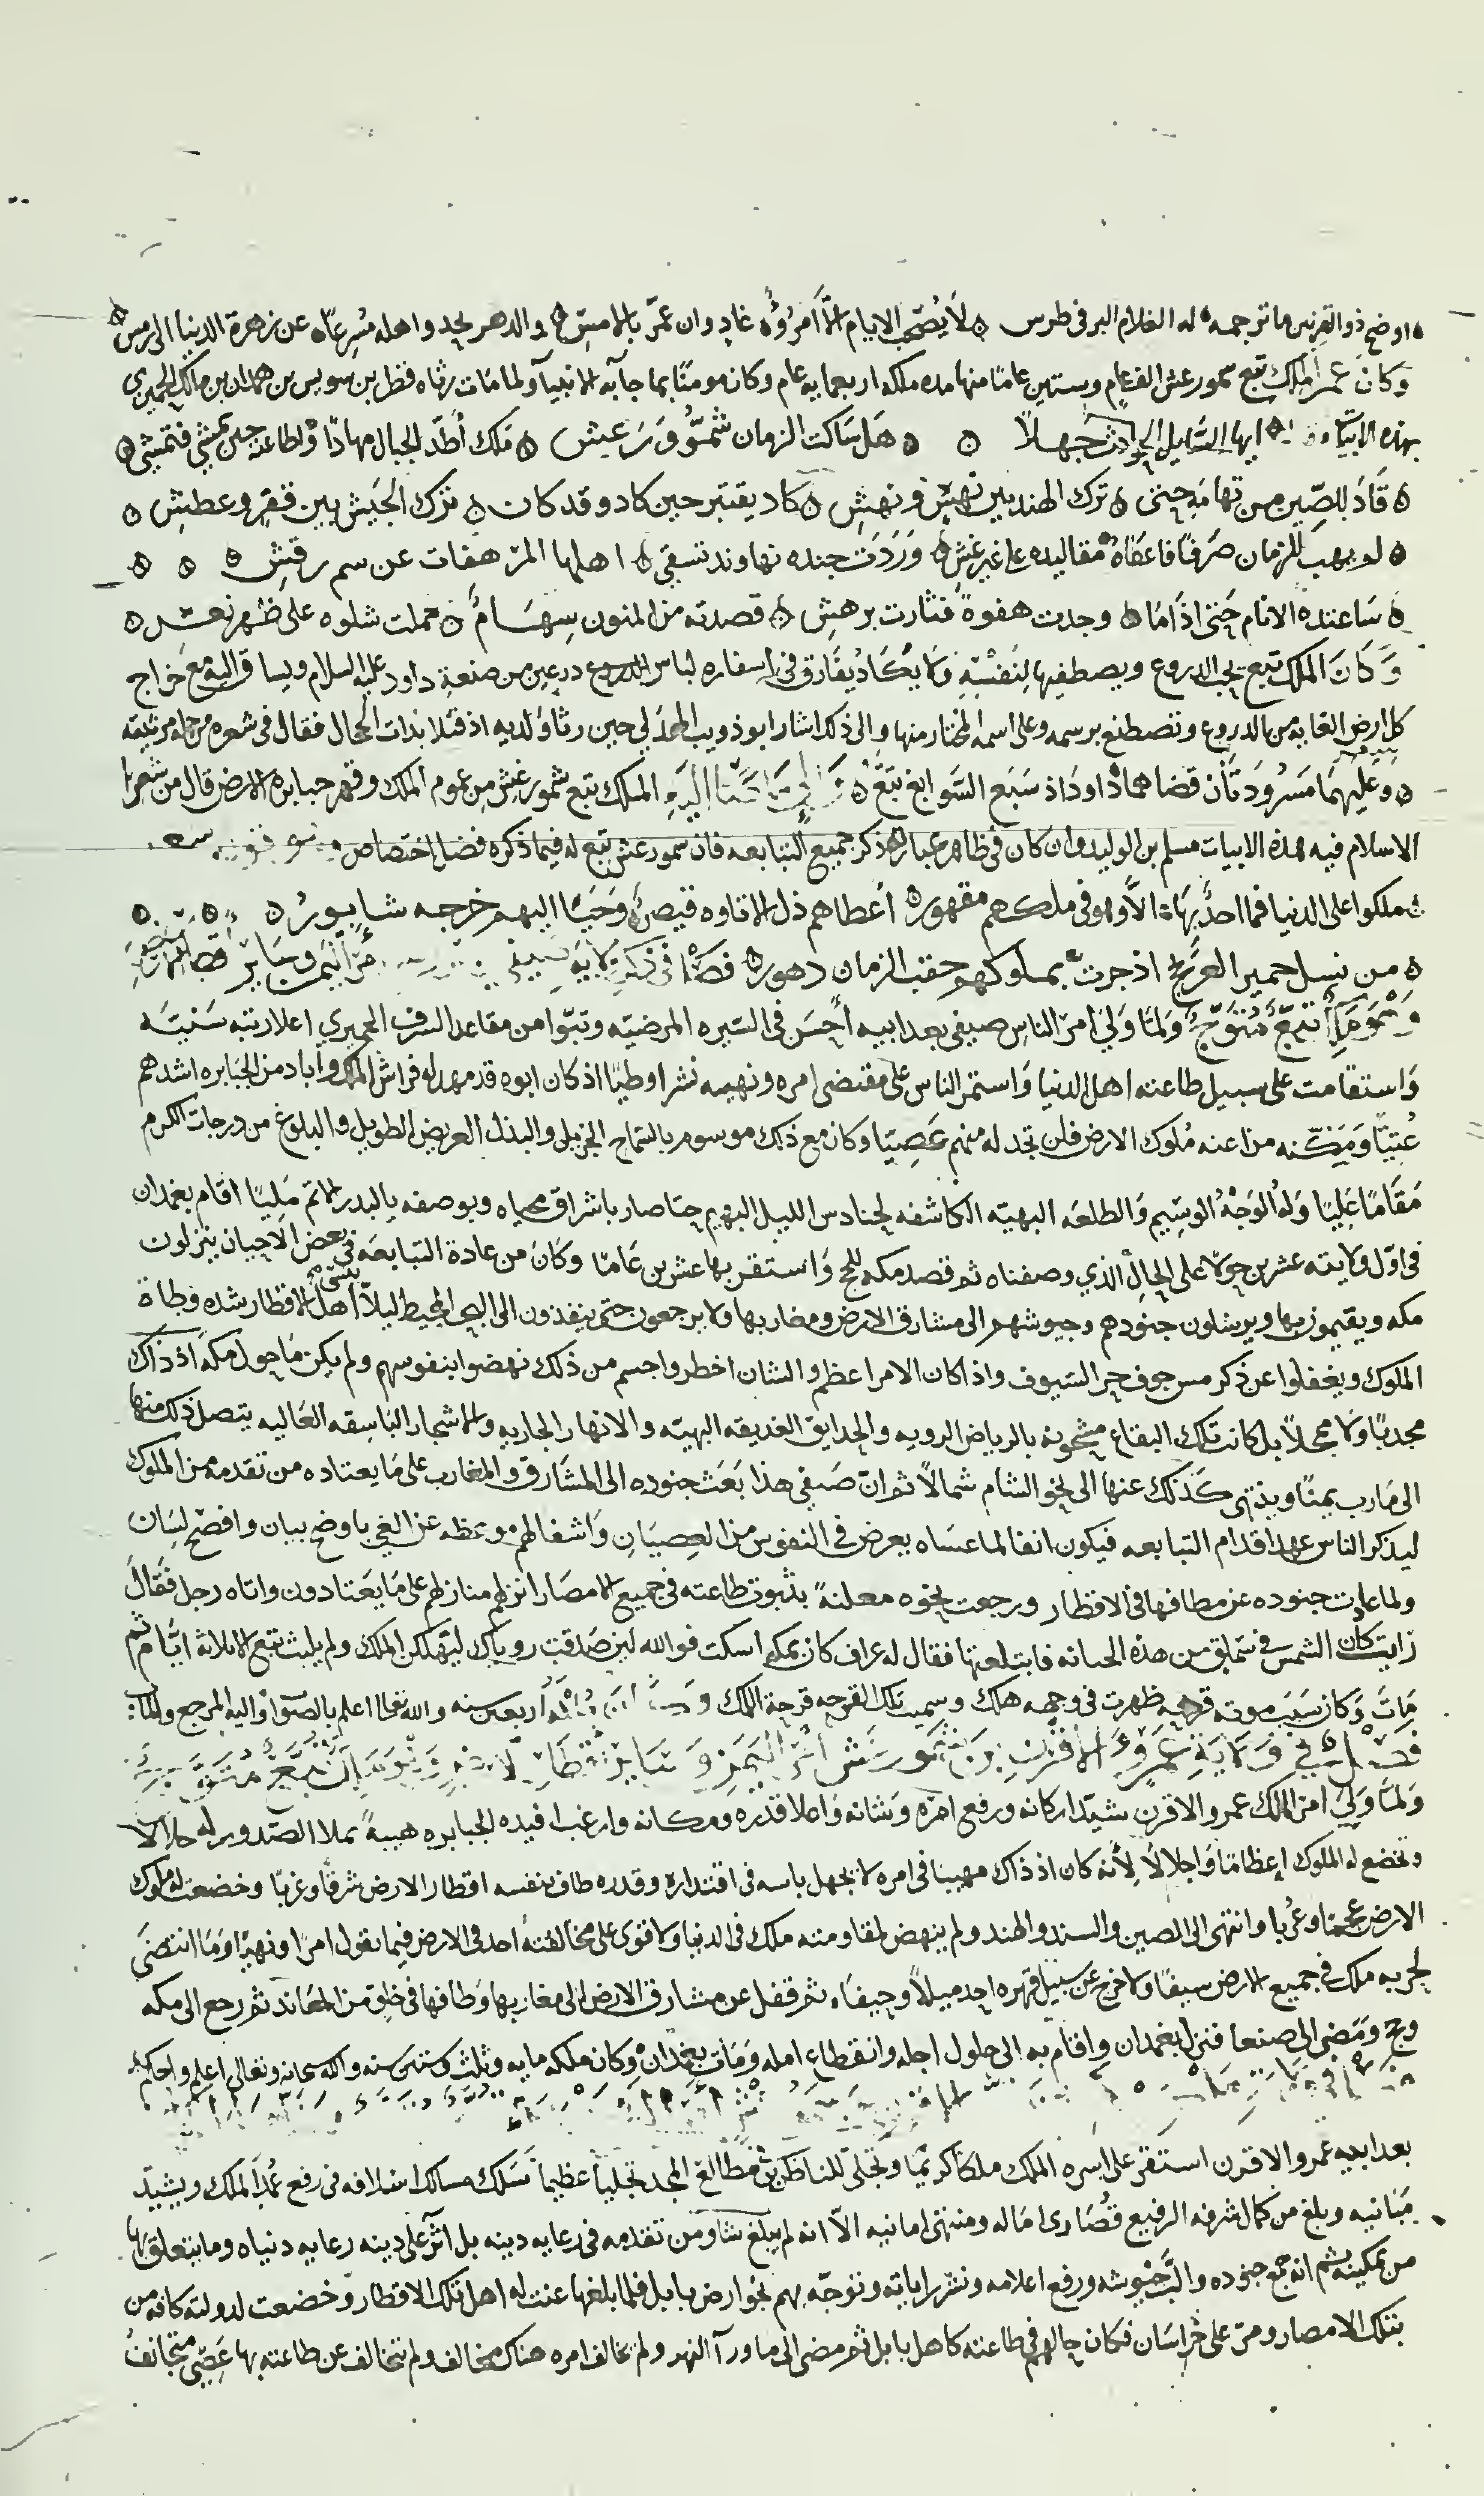 اوضح ذو القرنين ما ترجمه له الغلام البر في طرس لا يصحب الايام الا امرؤ غاد وان عمر بالامس والدهر يحدو اهله مسرعا عن زهرة الدنيا الى الرمس
وكان عمر الملك تبع شمور عش الف عام وستين عاما منها مده ملكه اربعمايه عام وكان مومنا بما جا به الانبيا ولما مات رثاه بن همدان بن مالك الحميري
بهذه الابيات ايها السايل الحوادث جهلا هل سالت الزمان شمر يرعش ملك أطد الجبال مهادا واطاعته حين يمشي فتمشي
قاد للصين من تهامه حتى ترك الهند بين نهش ونهش كاد يقتبر حين كاد وقد كان ترك الجيش بين فقر وعطش
لم يهب للزمان صرفا فاعطاه مقاليده على غير غش وردت جنده نهاوند تسقي اهلها المرهفات عن سم رقش
ساعدته الانام حتى اذا ما وجدت هفوة فثارت برهش قصدته من المنون سهام حملت شلوه على ظهر نعش
وكان الملك تبع يحب الدروع ويصطفيها لنفسه ولا يكاد يفارق في اسفاره لباس الدروع درعين من صنعة داود عليه السلام ويساق اليه مع خراج
كل ارض الغايه من الدروع وتصطنع برسمه وعلى اسمه المختار منها والى ذلك اشار ابو ذويب الهذلي حين رثا ولديه اذ قتلا بذات المجال فقال في شعره من جمله مرثيته
وعليهما مسرودتان قضاهما داود اذ سبع السوابغ تبع الملك تبع شمور عش من عموم الملك وقهر جبابره الارض قال من شعرا
الاسلام فيه هذه الابيات مسلم بن الوليد وان كان في ظاهر عباراته ذكر جميع التبابعه فان شمور عش تبع له فيما ذكره فضل اختصاص
ملكوا على الدنيا فما احد بها الا وهو في ملكهم مقهور أعطاهم ذل الاتاوه قيصر وحبا اليهم خرجه شابور
من نسل حمير العرنج اذ جرت بملوكهم حقب الزمان دهور فصل في ذكر ولايه صيفي
ولما ولي امر الناس صيفي بعد ابيه أحسن في السيره المرضيه وتبوا من مقاعد الشرف الحميري اعلا رتبه سنيه
واستقامت على سبيل طاعته اهل الدنيا واستمر الناس على مقتضى امره ونهيه نشرا وطيا اذ كان ابوه قد مهد له فراش الملك وأباد من الجبابره اشدهم
عتيا ومكنه من اعنه ملوك الارض فلن تجد له منهم عصيا وكان مع ذلك موسوم بالسماح الجزيل والبذل العريض الطويل والبلوغ من درجات الكرم
مقاما عليا وله الوجه الوسيم والطلعه البهيه الكاشفه لحنادس الليل البهيم حتا صار باشراق محياه وبوصفه بالبدر الاتم مليا اقام بغمدان
في اول ولايته عشرين حولا على الحال الذي وصفناه ثم قصد مكه للحج واستقر بها عشرين عاما وكان من عادة التبابعه في بعض الاحيان ينزلون
مكه ويقيمون بها ويرسلون جنودهم وجيوشهم الى مشارق الارض ومغاربها ولا يرجعون حتى ينفذون الى البحر المحيط ليلا ينسى اهل الاقطار شده وطاة
الملوك ويغفلوا عن ذكر مس جوف حر السيوف واذا كان الامر اعظم والشان اخطر واجسم من ذلك نهضوا بنفوسهم ولم يكن ما حول مكه اذ ذاك
مجدبا ولا ممحلا بل كانت تلك البقاع مشحونه بالرياض الرويه والحدايق الغديقه البهيه والانهار الجاريه والاشجار الباسقه العاليه يتصل ذلك منها
الى مارب يمنا وينتهي كذلك عنها الى نحو الشام شمالا ثم ان صيفي هذا بعث جنوده الى المشارق والمغارب على ما يعتاده من تقدمه من الملوك
ليذكر الناس عهد اقدام التبابعه فيكون انفا لما عساه يعرض في النفوس من العصيان واشفا لهم موعظه عن الغي باوضح بيان وافصح لسان
ولما عادت جنوده عن مطافها في الاقطار ورجعت نحوه معلنة بثبوت طاعته في جميع الامصار انزلهم منازلهم على ما يعتادون واتاه رجل فقال
رايت كان الشمس في فابتلعتها فقال له عراف كان بمكه اسكت فوالله لين صدقت روياك ليهلكن الملك ولم يلبث تبع الا ثلاثه ايام ثم
مات وكان سبب موته قرحه ظهرت في وجهه هلك وسميت تلك القرحه قرحة الملك اربعين سنه والله تعالى اعلم بالصواب واليه المرجع والماب
فصل في ولاية عمرو الاقرن بن شمور عش امر اليمن وساير اقطار
ولما ولي امر الملك عمرو الاقرن شيد اركانه ورفع امره وشانه واعلا قدره ومكانه وارعب افيده الجبابره هيبة تملا الصدور له جلالا
وتخضع له الملوك إعظاما واجلالا لأنه كان اذ ذاك مهيبا في امره لا يجهل باسه في اقتداره وقدره طاف بنفسه اقطار الارض شرقا وغربا وخضعت له ملوك
الارض عجما وعربا وانتهى الى الصين والسند والهند ولم ينهض لمقاومته ملك في الدنيا ولا قوي على مخالفته احد في الارض فيما يقول امرا ونهيا وما انتضى
لحربه ملك في جميع الارض سيفا ولا خرج عن سبيل قهره احد ميلا وحيفا ثم قفل عن مشارق الارض الى مغاربها وطافها في خلق من المعاند ثم رجع الى مكه
وحج ومضى الى صنعا فنزل بغمدان واقام به الى حلول اجله وانقطاع امله ومات بغمدان وكان ملكه مايه وثلث وستين سنه والله سبحانه وتعالى اعلم واحكم
بعد ابيه عمرو الاقرن استقر على أسره الملك ملكا كريما وتجلى للناظرين من مطالع المجد تجليا عظيما سلك مسالك اسلافه في رفع عمد الملك ويشيد
مبانيه وبلغ من كمال شرفه الرفيع قصارى اماله ومنتهى امانيه الا انه لم يبلغ شاو من تقدمه في رعايه دينه بل اثر على دينه رعايه دنياه وما يتعلق بها
من تمكينه ثم انه جمع جنوده والب جيوشه ورفع اعلامه ونشر راياته وتوجه بهم نحو ارض بابل فلما بلغها عنت له اهل تلك الاقطار وخضعت لدولته كافه من
بتلك الامصار ومر على خراسان فكان حالهم في طاعته كاهل بابل ثم مضى الى ما ورآ النهر ولم يخالف امره هناك مخالف ولم يتخالف عن طاعته بها عصي متجانف